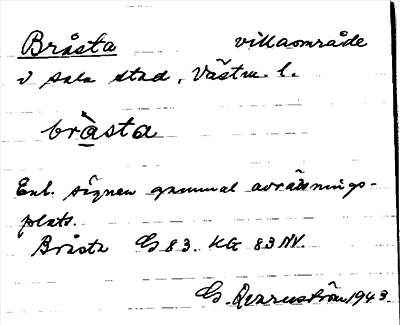 Bråsta villaområde
v sala stad, Västm. l.
bràsta
Enl. sägnen gammal avrättnings-
plats.
Bråsta G 83. KG 83 NV.
G. 1943.